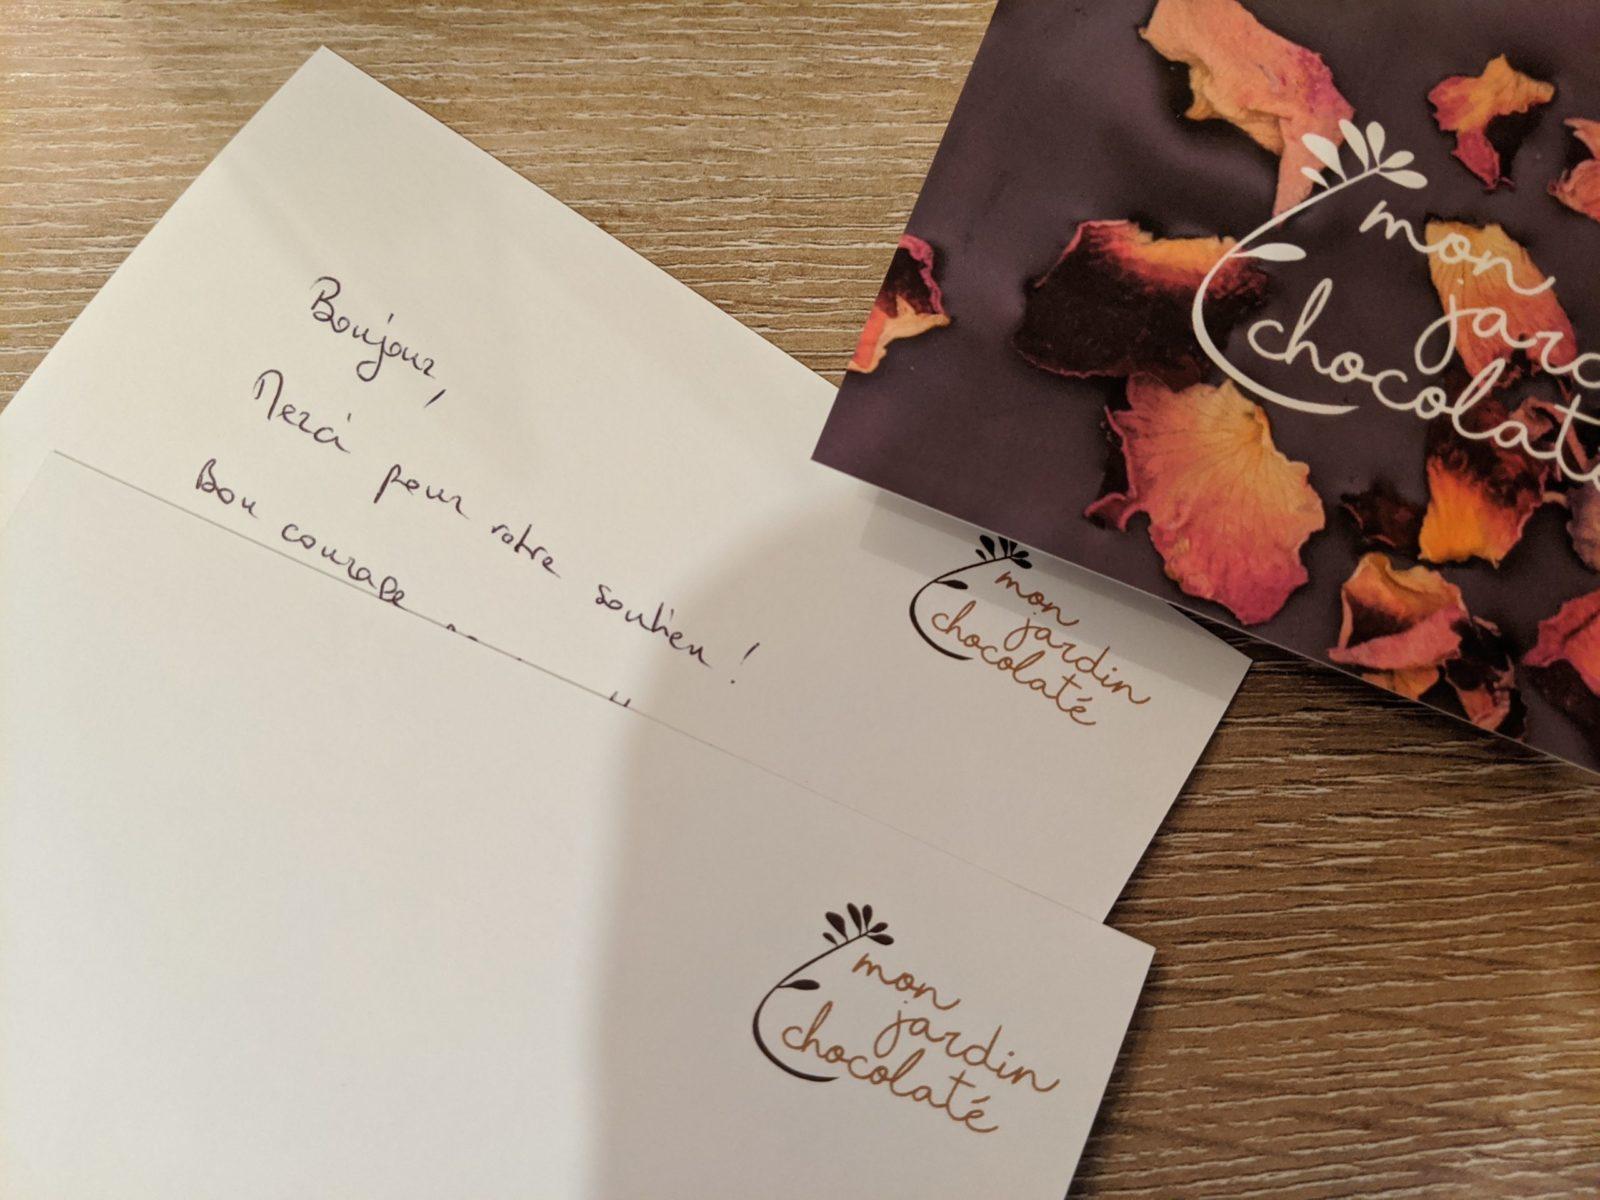 Bonjour,
Merci pour votre soutien !
Bon courage
mon
jardin
chocolaté
mon
jardin
chocolaté
mon
chocolaté